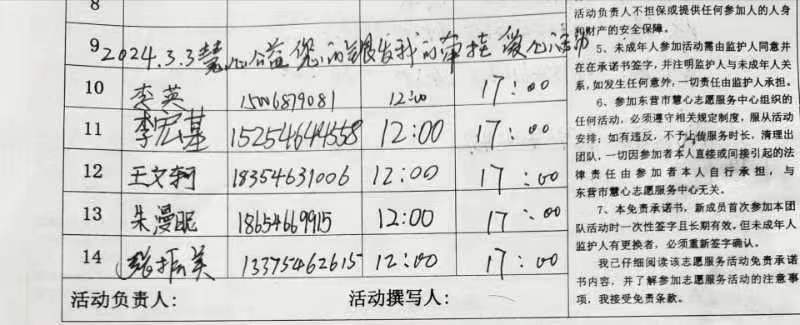 8
9 2024.3.3慧心公益 您的银发我的牵挂 爱心活动
10 李英 15006879081 12:00 17:00
11 李宏基 15254644558 12:00 17:00
12 王文轲 18354631006 12:00 17:00
13 朱漫昵 18654669915 12:00 17:00
14 张振美 13375462615 12:00 17:00
活动负责人： 活动撰写人：
活动负责人不担保或提供任何参加人的人身
和财产的安全保障。
5、未成年人参加活动需由监护人同意并
在在承诺书签字，并注明监护人与未成年人关
系，如发生任何意外，一切责由监护人承担。
6、参加东营市慧心志愿服务中心组织的
任何活动，必须遵守相关规定制度，服从活动
安排；如有违反，不予上传服务时长，清理出
团队，一切因参加者本人直接或间接引起的法
律责任由参加者本人自行承担，与
东营市慧心志愿服务中心无关。
7、本免责承诺书，新成员首次参加本团
队活动时一次性签字且长期有效。但未成年人
监护人有更换者，必须重新签字确认。
我已仔细阅读该志愿服务活动免责承诺
书内容，并了解参加志愿服务活动的注意事
项，我接受免责条款。